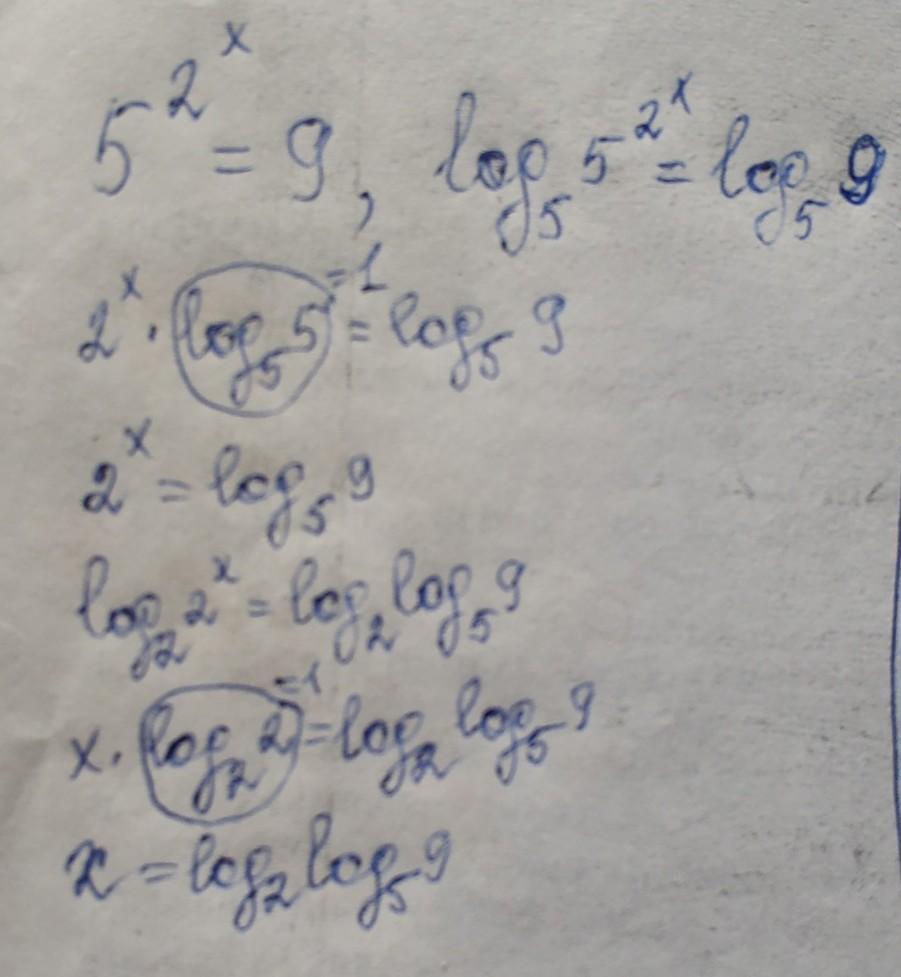 5^{2^x} = 9, log_5 5^{2^x} = log_5 9
2^x · log_5 5 = 1 = log_5 9
2^x = log_5 9
log_2 2^x = log_2 log_5 9
x · log_2 2 = 1 = log_2 log_5 9
x = log_2 log_5 9